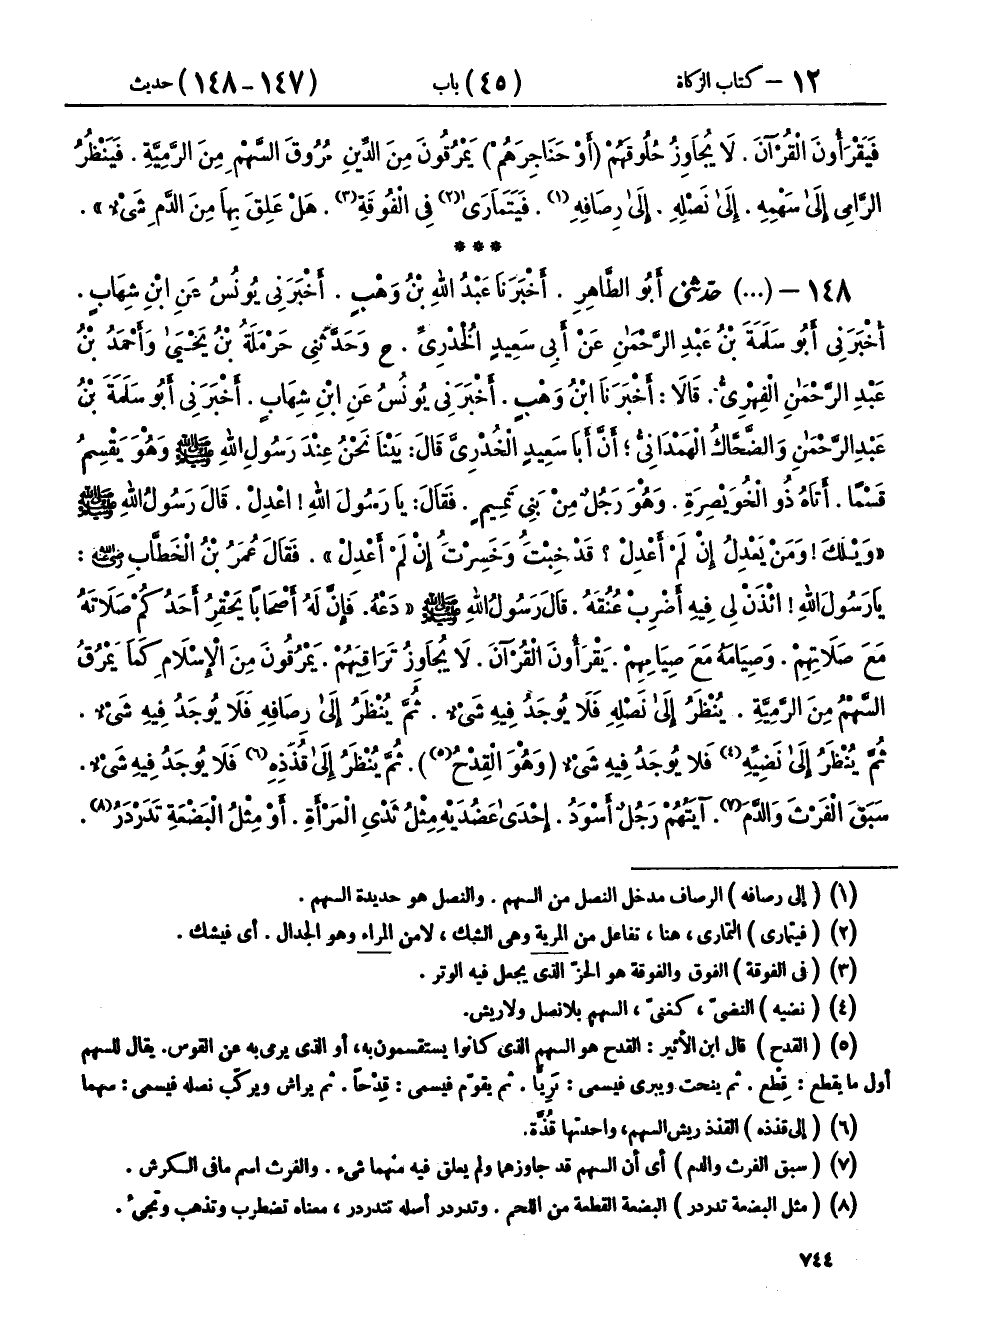 ١٢ – كتاب الزكاة (٤٥) باب (١٤٧-١٤٨) حديث
فَيَقْرَأُونَ الْقُرْآنَ . لَا يُجَاوِزُ حُلُوقَهُمْ (أَوْ حَنَاجِرَهُمْ) يَمْرُقُونَ مِنَ الدِّينِ مُرُوقَ السَّهْمِ مِنَ الرَّمِيَّةِ . فَيَنْظُرُ
الرَّامِى إِلَىٰ سَهْمِهِ . إِلَىٰ نَصْلِهِ . إِلَىٰ رِصَافِهِ (١) . فَيَتَمَارَىٰ (٢) فِى الْفُوقَةِ (٣) . هَلْ عَلِقَ بِهَا مِنَ الدَّمِ شَىْءٌ » .
***
١٤٨ – (...) حَدَّثَنِى أَبُو الطَّاهِرِ . أَخْبَرَنَا عَبْدُ اللهِ بْنُ وَهْبٍ . أَخْبَرَنِى يُونُسُ عَنِ ابْنِ شِهَابٍ .
أَخْبَرَنِى أَبُو سَلَمَةَ بْنُ عَبْدِ الرَّحْمَٰنِ عَنْ أَبِى سَعِيدٍ الْخُدْرِىِّ . ح وَحَدَّثَنِى حَرْمَلَةُ بْنُ يَحْيَىٰ وَأَحْمَدُ بْنُ
عَبْدِ الرَّحْمَٰنِ الْفِهْرِىُّ . قَالَا : أَخْبَرَنَا ابْنُ وَهْبٍ . أَخْبَرَنِى يُونُسُ عَنِ ابْنِ شِهَابٍ . أَخْبَرَنِى أَبُو سَلَمَةَ بْنُ
عَبْدِ الرَّحْمَٰنِ وَالضَّحَّاكُ الْهَمْدَانِىُّ ؛ أَنَّ أَبَا سَعِيدٍ الْخُدْرِىَّ قَالَ : بَيْنَا نَحْنُ عِنْدَ رَسُولِ اللهِ ﷺ وَهُوَ يَقْسِمُ
قَسْمًا . أَتَاهُ ذُو الْخُوَيْصِرَةِ . وَهُوَ رَجُلٌ مِنْ بَنِى تَمِيمٍ . فَقَالَ : يَا رَسُولَ اللهِ ! اعْدِلْ . قَالَ رَسُولُ اللهِ ﷺ
« وَيْلَكَ ! وَمَنْ يَعْدِلُ إِنْ لَمْ أَعْدِلْ ؟ قَدْ خِبْتُ وَخَسِرْتُ إِنْ لَمْ أَعْدِلْ » . فَقَالَ عُمَرُ بْنُ الْخَطَّابِ رضي الله عنه :
يَا رَسُولَ اللهِ ! ائْذَنْ لِى فِيهِ أَضْرِبْ عُنُقَهُ . قَالَ رَسُولُ اللهِ ﷺ « دَعْهُ . فَإِنَّ لَهُ أَصْحَابًا يَحْقِرُ أَحَدُكُمْ صَلَاتَهُ
مَعَ صَلَاتِهِمْ . وَصِيَامَهُ مَعَ صِيَامِهِمْ . يَقْرَأُونَ الْقُرْآنَ . لَا يُجَاوِزُ تَرَاقِيَهُمْ . يَمْرُقُونَ مِنَ الْإِسْلَامِ كَمَا يَمْرُقُ
السَّهْمُ مِنَ الرَّمِيَّةِ . يُنْظَرُ إِلَىٰ نَصْلِهِ فَلَا يُوجَدُ فِيهِ شَىْءٌ . ثُمَّ يُنْظَرُ إِلَىٰ رِصَافِهِ فَلَا يُوجَدُ فِيهِ شَىْءٌ .
ثُمَّ يُنْظَرُ إِلَىٰ نَضِيِّهِ (٤) فَلَا يُوجَدُ فِيهِ شَىْءٌ (وَهُوَ الْقِدْحُ (٥) ) . ثُمَّ يُنْظَرُ إِلَىٰ قُذَذِهِ (٦) فَلَا يُوجَدُ فِيهِ شَىْءٌ .
سَبَقَ الْفَرْثَ وَالدَّمَ (٧) . آيَتُهُمْ رَجُلٌ أَسْوَدُ . إِحْدَىٰ عَضُدَيْهِ مِثْلُ ثَدْىِ الْمَرْأَةِ . أَوْ مِثْلُ الْبَضْعَةِ تَدَرْدَرُ (٨) .
(١) ( إلى رصافه ) الرصاف مدخل النصل من السهم . والنصل هو حديدة السهم .
(٢) ( فيتمارى ) التمارى ، هنا ، تفاعل من المرية وهى الشك ، لا من المراء وهو الجدال . أى فيشك .
(٣) ( فى الفوقة ) الفوق والفوقة هو الحزّ الذى يجعل فيه الوتر .
(٤) ( نضيه ) النضىّ ، كغنىّ ، السهم بلا نصل ولا ريش.
(٥) ( القدح ) قال ابن الأثير : القدح هو السهم الذى كانوا يستقسمون به، أو الذى يرمى به عن القوس. يقال للسهم
أول ما يقطع : قِطْع . ثم ينحت ويبرى فيسمى : بَرِيًّا . ثم يقوّم فيسمى : قِدْحاً . ثم يراش ويركّب نصله فيسمى : سهما
(٦) ( إلى قذذه ) القذذ ريش السهم، واحدتها قُذَّة.
(٧) ( سبق الفرث والدم ) أى أن السهم قد جاوزهما ولم يعلق فيه منهما شىء . والفرث اسم ما فى الكرش .
(٨) ( مثل البضعة تدردر ) البضعة القطعة من اللحم . وتدردر أصله تتدردر ، معناه تضطرب وتذهب وتجىء .
٧٤٤